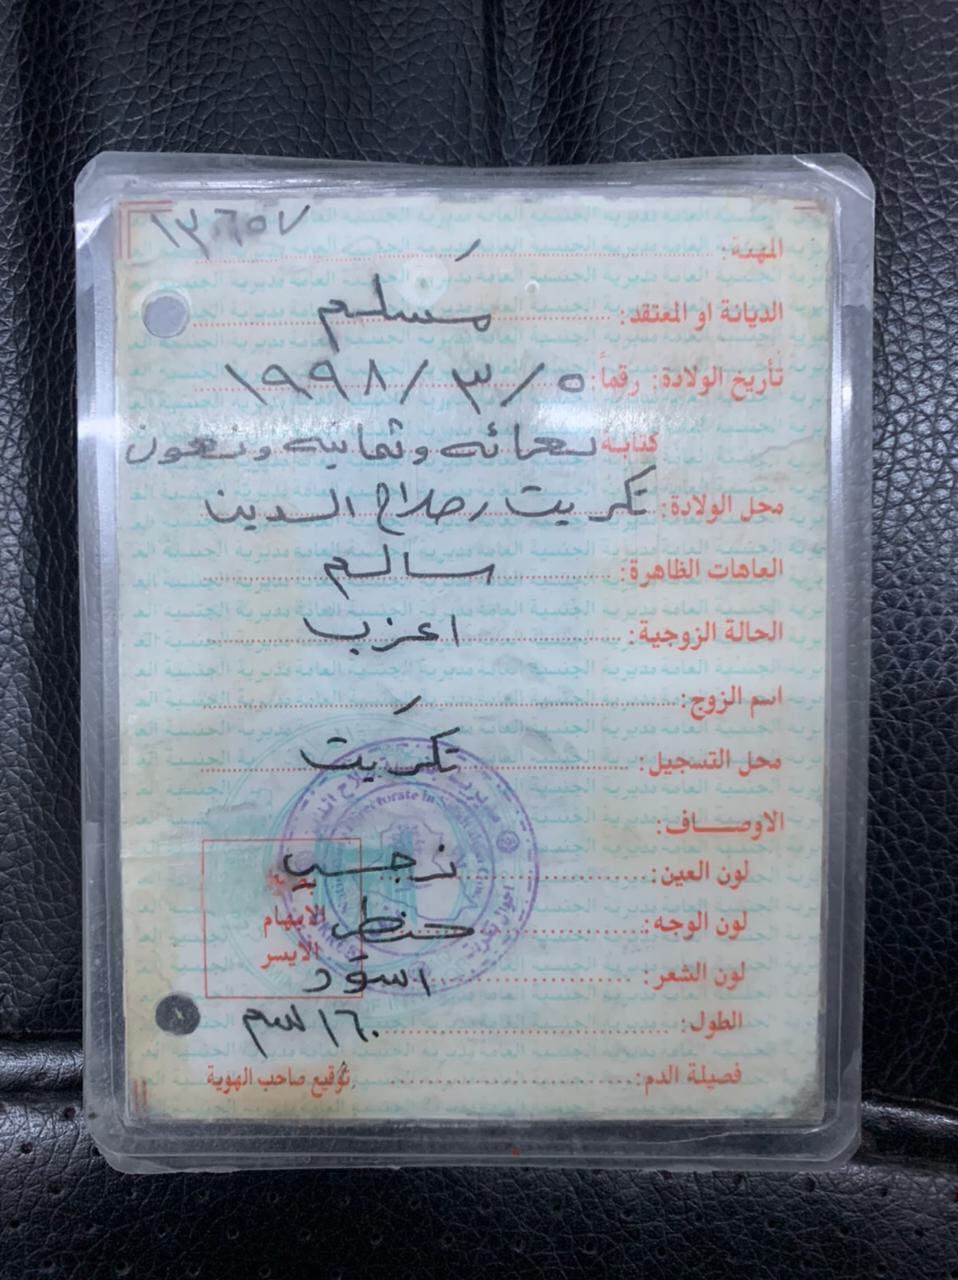 ١٣٦٥٧
المهنة:
الديانة او المعتقد: مسلم
تأريخ الولادة: رقماً: ٥/٣/١٩٩٨
كتابة وثمانيه وتسعون
محل الولادة: تكريت/صلاح الدين
العاهات الظاهرة: سالم
الحالة الزوجية: اعزب
اسم الزوج:
محل التسجيل: تكريت
الاوصاف:
لون العين: نرجسي
لون الوجه: حنطي
لون الشعر: اسود
بصمة
الابهام
الايسر
الطول: ١٦٠ سم
فصيلة الدم:
توقيع صاحب الهوية